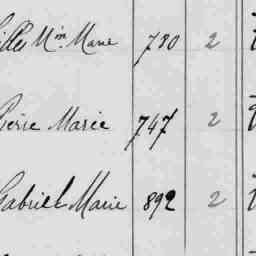 illes Mie Marie 730 2
Pierre Marie 747 2
Gabriel Marie 892 2